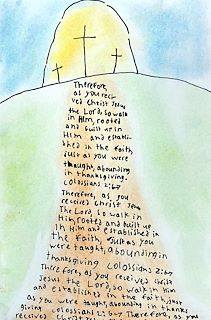 Therefore,
as you recei
ved Christ Jesus
the Lord, so walk
in Him, rooted
and built up in
Him and establi
shed in the faith,
just as you were
thaught, abounding
in thanksgiving.
Colossians 2:6-7
Therefore, as you
received Christ Jesus
The Lord, so walk in
Him, rooted and built up
in Him and established in
the faith, just as you
were taught, abounding in
thanksgiving Colossians 2:6-7
Therefore, as you received Christ
Jesus the Lord, so walk in Him
and established in the faith, just
as you were taught, abounding in thanks
giving. Colossians 2:6-7 Therefore, as you